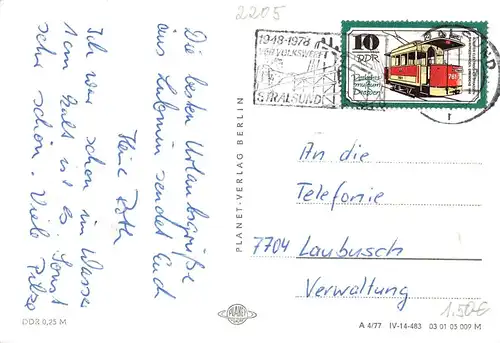 2205
1948-1978
VEB VOLKSWERFT
STRALSUND
10
DDR
Verkehrs-
museum
Dresden
Die besten Urlaubsgrüße
aus Lubmin sendet Euch
Heinz Roth
Ich war schon im Wasser
kalt ist es. Sonst
sehr schön. Viele Pilze
PLANET-VERLAG BERLIN
An die
Telefonie
7704 Laubusch
Verwaltung
1.50€
PLANET
DDR 0,25 M
A 4/77 IV-14-483 03 01 05 009 M